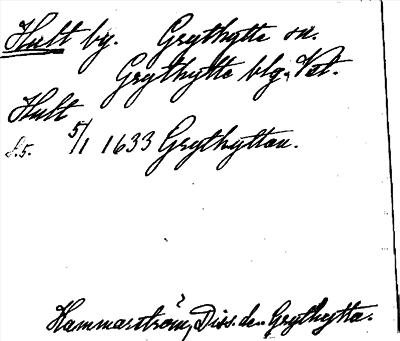 Hult by. Grythytte sn.
Grythytte blg., Vst.
Hult
s.5. 5/1 1633 Grythyttan.
Hammarström, Diss. de Grythytta.